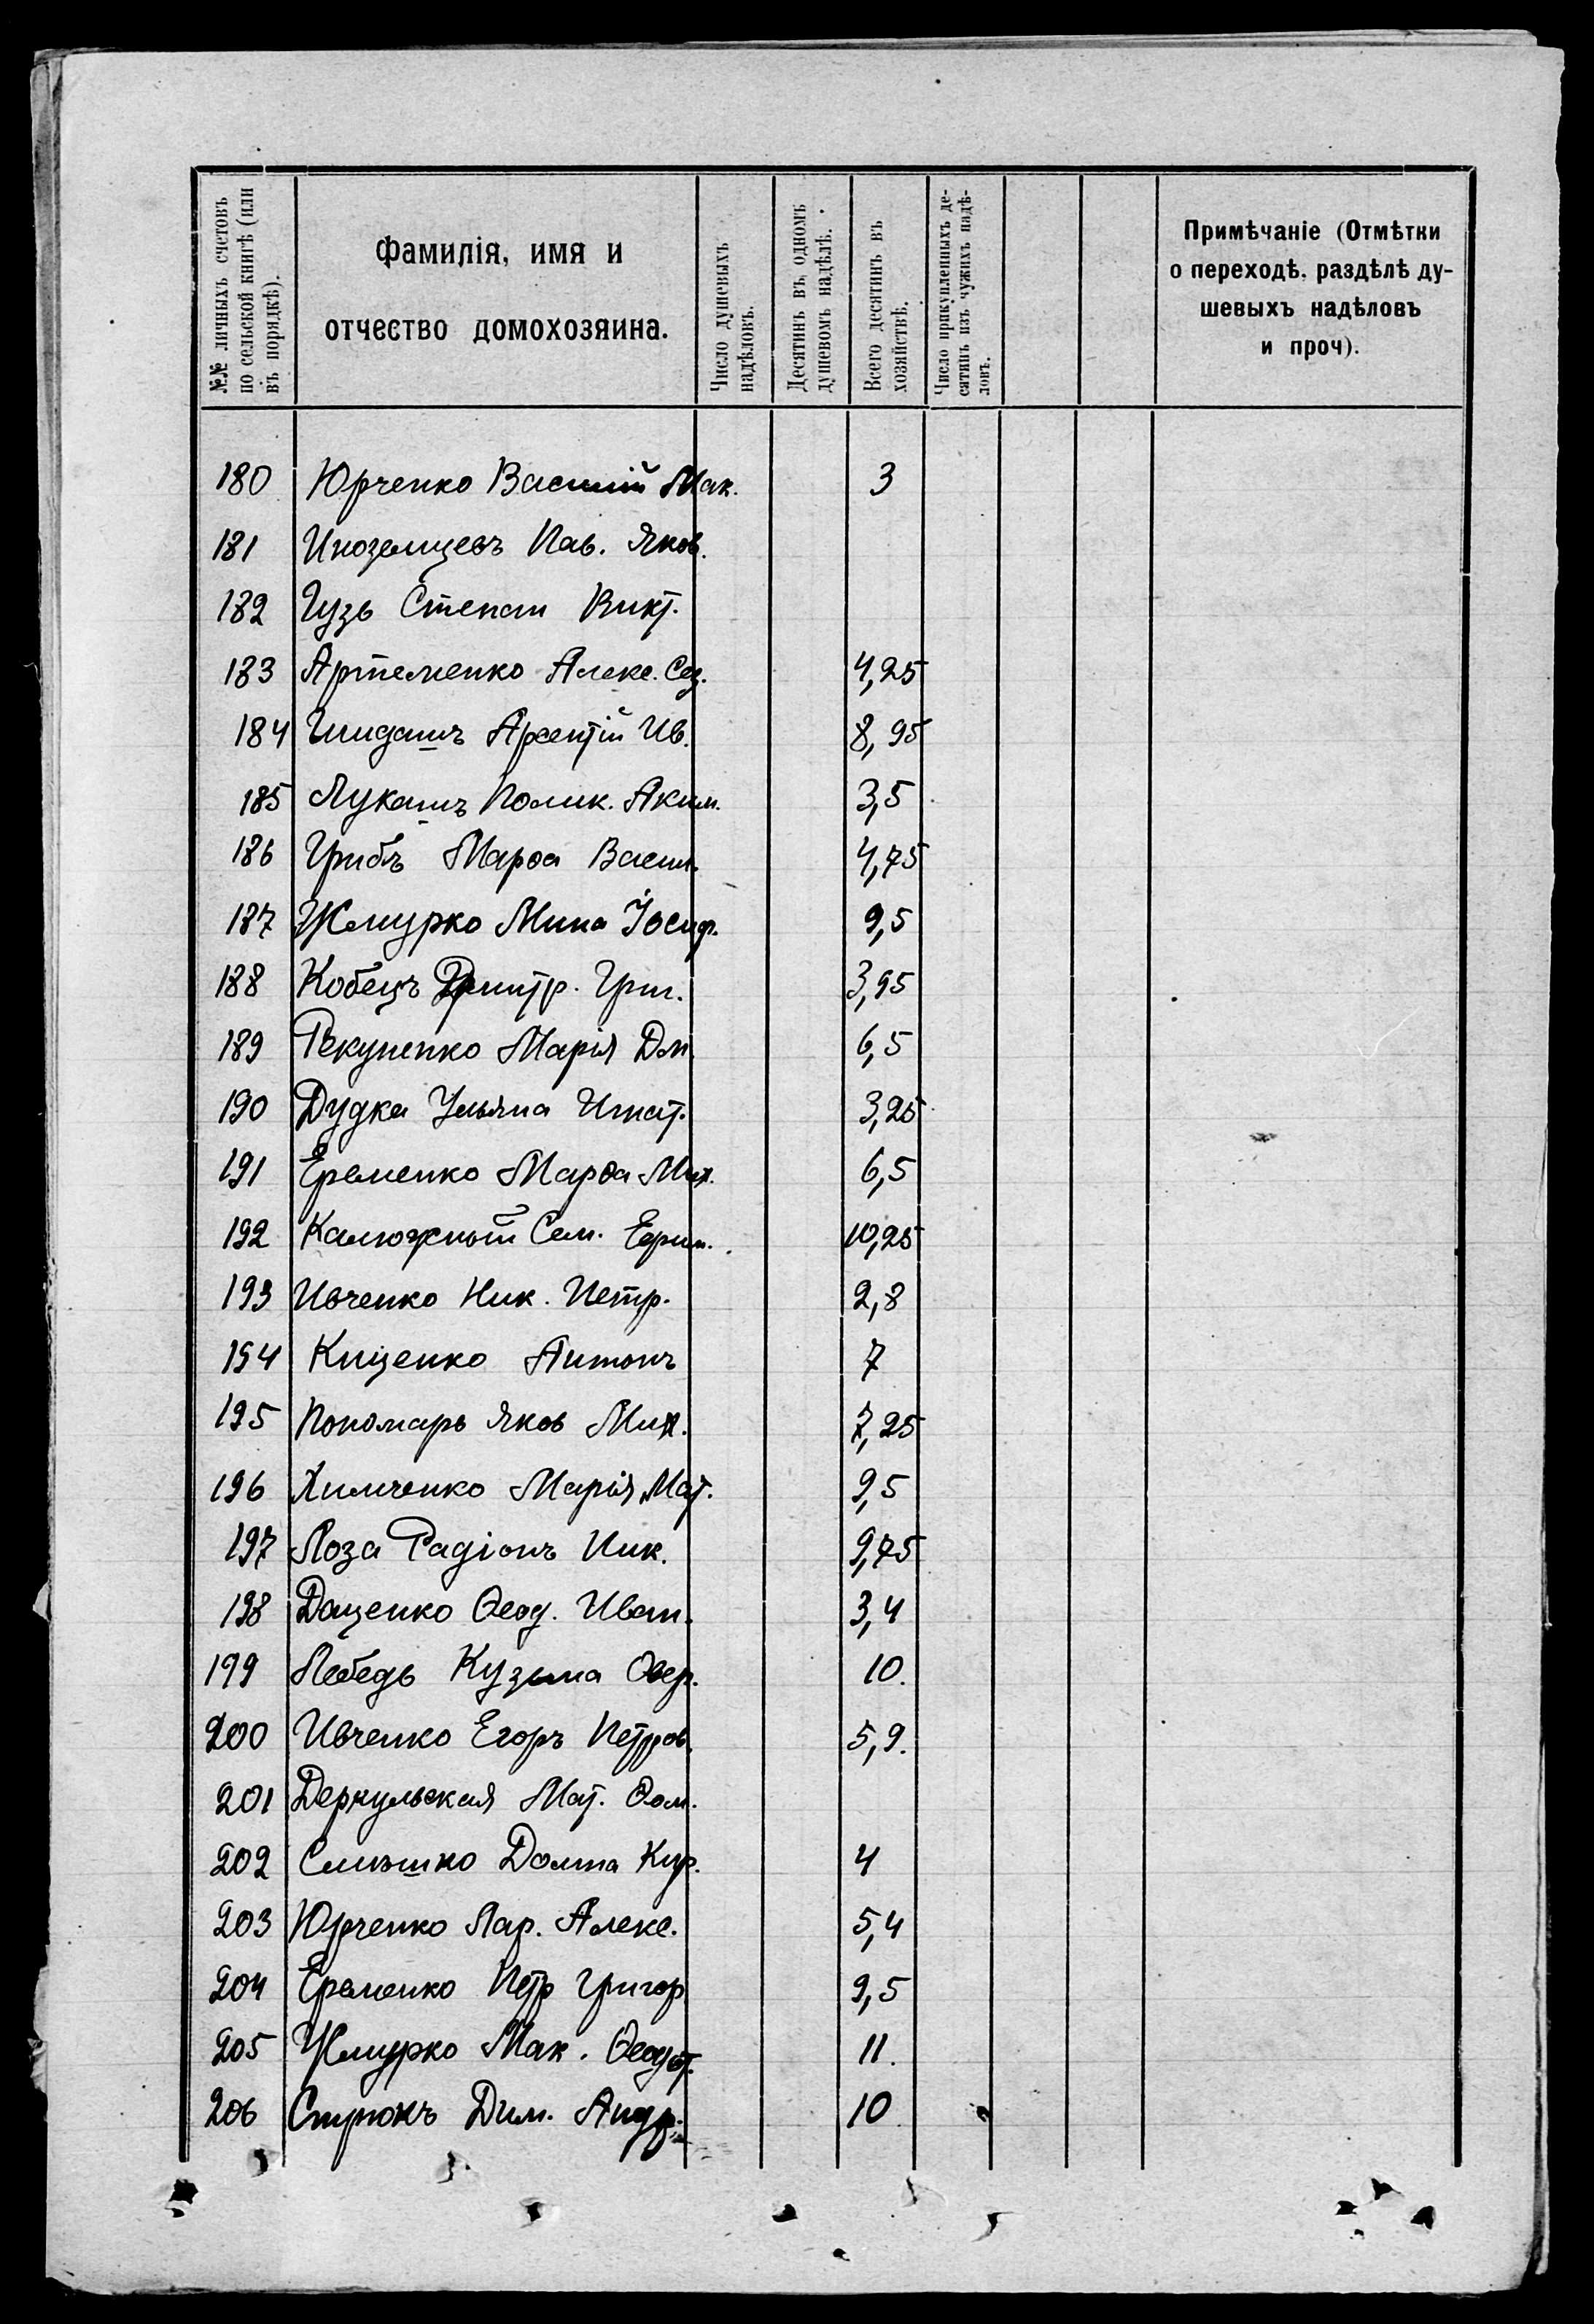 №№ личныхъ счетовъ
по сельской книгѣ (или
въ порядкѣ).
Фамилія, имя и
отчество домохозяина.
Число душевыхъ
надѣловъ.
Десятинъ въ одномъ
душевомъ надѣлѣ.
Всего десятинъ въ
хозяйствѣ.
Число прикупленныхъ де-
сятинъ изъ чужихъ надѣ-
ловъ.
Примѣчаніе (Отмѣтки
о переходѣ, раздѣлѣ ду-
шевыхъ надѣловъ
и проч).
180 Юрченко Василій Мак. 3
181 Иноземцевъ Пав. Яков.
182 Гузь Степан Викт.
183 Артеменко Алекс. 4,25
184 Арсентій Ив. 8,95
185 Лукашъ Полик. Аким. 3,5
186 Грибъ Марѳа Васил. 4,75
187 Жмурко Мина Іосиф. 9,5
188 Кобецъ Дмитр. Григ. 3,95
189 Рекуненко Марія Дм. 6,5
190 Дудка Ульяна Игнат. 3,25
191 Еременко Марѳа Мих. 6,5
192 Калюжный Сем. Ефим. 10,25
193 Ивченко Ник. Петр. 2,8
194 Кищенко Антонъ 7
195 Пономарь Яков Мих. 7,25
196 Химченко Марія Мат. 9,5
197 Лоза Радіонъ Ник. 9,75
198 Даценко Ѳеод. Иван. 3,4
199 Лебедь Кузьма Овер. 10.
200 Ивченко Егоръ Петров. 5,9.
201 Деркульская Мат. Ѳом.
202 Домна Кир. 4
203 Юрченко Лар. Алекс. 5,4
204 Еременко Петр Григор 9,5
205 Жмурко Мак. Ѳедот. 11.
206 Струкъ Дим. Андр. 10